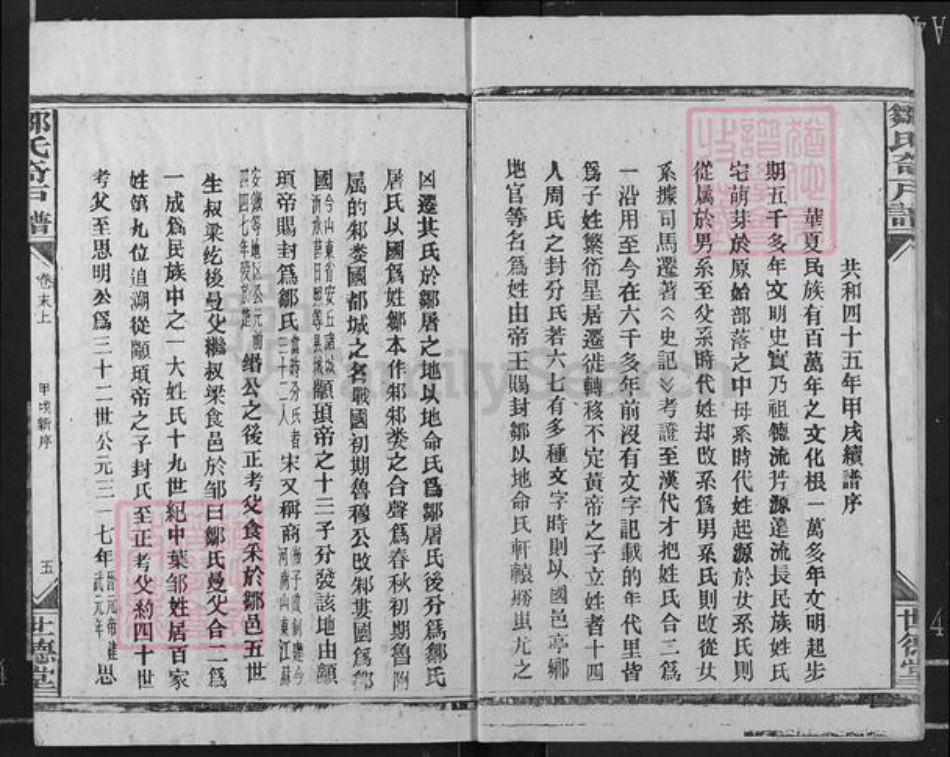 共和四十五年甲戌續譜序
華夏民族有百萬年之文化根一萬多年文明起步
期五千多年文明史實乃祖德流芳源遠流長民族姓氏
宅萌芽於原始部落之中母系時代姓起源於女系氏則
從属於男系至父系時代姓却改系爲男系氏則改從女
系據司馬遷著《史記》考證至漢代才把姓氏合二爲
一沿用至今在六千多年前沒有文字記載的年代里皆
爲子姓繁衍星居遷徙轉移不定黃帝之子立姓者十四
人周氏之封分氏若六七有多種文字時則以國邑亭鄉
地官等名爲姓由帝王賜封鄒以地命氏軒轅 蚩尤之
鄒氏 戶譜
世德堂
凶遷其氏於鄒屠之地以地命氏爲鄒屠氏後分爲鄒氏
屠氏以國爲姓鄒本作邾邾娄之合聲爲春秋初期魯附
属的邾娄國都城之名戰國初期魯穆公改邾婁國爲鄒
國今山東省安丘諸城沂水莒日照等县域顓頊帝之十二子分發該地由顓
頊帝賜封爲鄒氏當時分氏者三十二人宋又稱商 河南山東江蘇
安徽等地区公元前 四七年 緡公之後正考父食采於鄒邑五世
生叔梁紇後曼父繼叔梁食邑於邹曰鄒氏曼父合二爲
一成爲民族中之一大姓氏十九世紀中葉邹姓居百家
姓第九位追溯從顓頊帝之子封氏至正考父約四十世
考父至思明公爲三十二世公元三一七年晋元帝建武元年思
鄒氏 戶譜
卷末上
甲戌新序
五
世德堂
FamilySearch